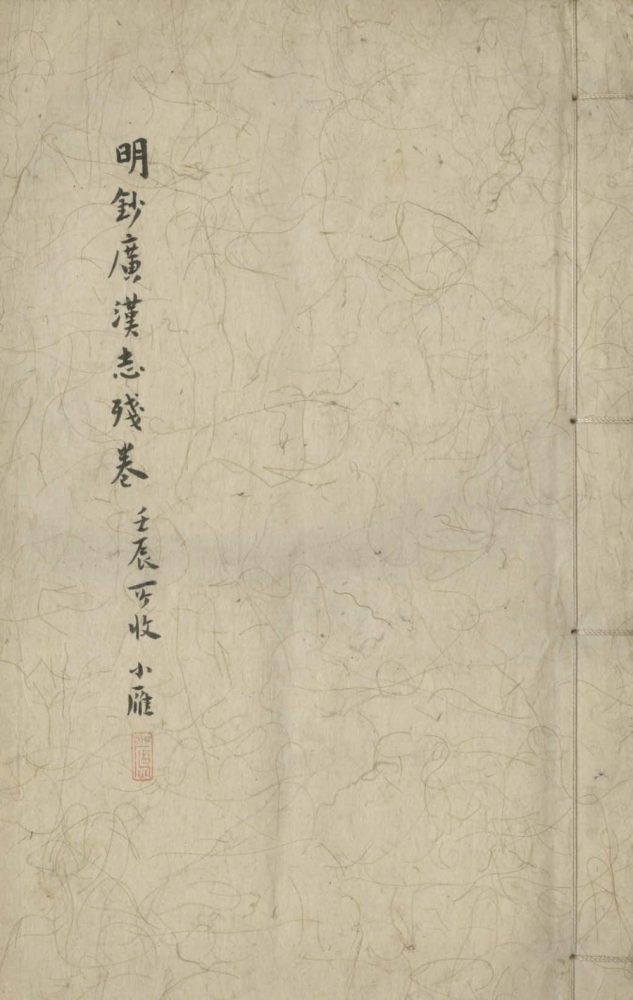 明鈔廣漢志殘卷
壬辰所收 小雁